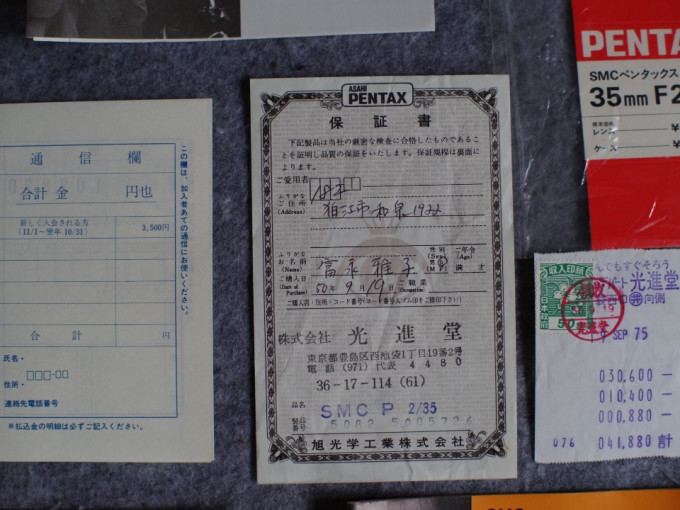 通信欄
合計金 円也
新しく入会される方
(11/1〜翌年10/31)
3,500円
合計 円
氏名・
□□□-□□
住所・
連絡先電話番号
※払込金の明細は必ずご記入ください。
この欄は、加入者あての通信にお使いください。
ASAHI
PENTAX
保証書
下記製品は当社の厳密な検査に合格したものであるこ
とを証明し品質の保証をいたします。保証規程は裏面に
よります。
ご愛用者
ふりがな
ご住所
(Address)
狛江市和泉1922
ふりがな
お名前
(Name)
富永雅子
性別
(Sex)
(M F)
ご年令
(Age)
満 才
ご購入日
(Date of Purchase)
50年9月19日
ご職業
(Occupation)
ご購入店・住所・コード番号(コード番号入ゴム印をご捺印下さい)
株式会社 光進堂
東京都豊島区西池袋1丁目19番2号
電話(971)代表 4480
36-17-114(61)
品名
SMC P 2/35
製品番号
旭光学工業株式会社
PENTA
SMCペンタックス
35mm F2
標準価格
レンズ ¥
ケース ¥
んでもすぐそろう
光進堂
向側
収入印紙
日本政府
50
領収
光進堂
SEP 75
030,600 —
010,400 —
000,880 —
076 041,880 計
SMC